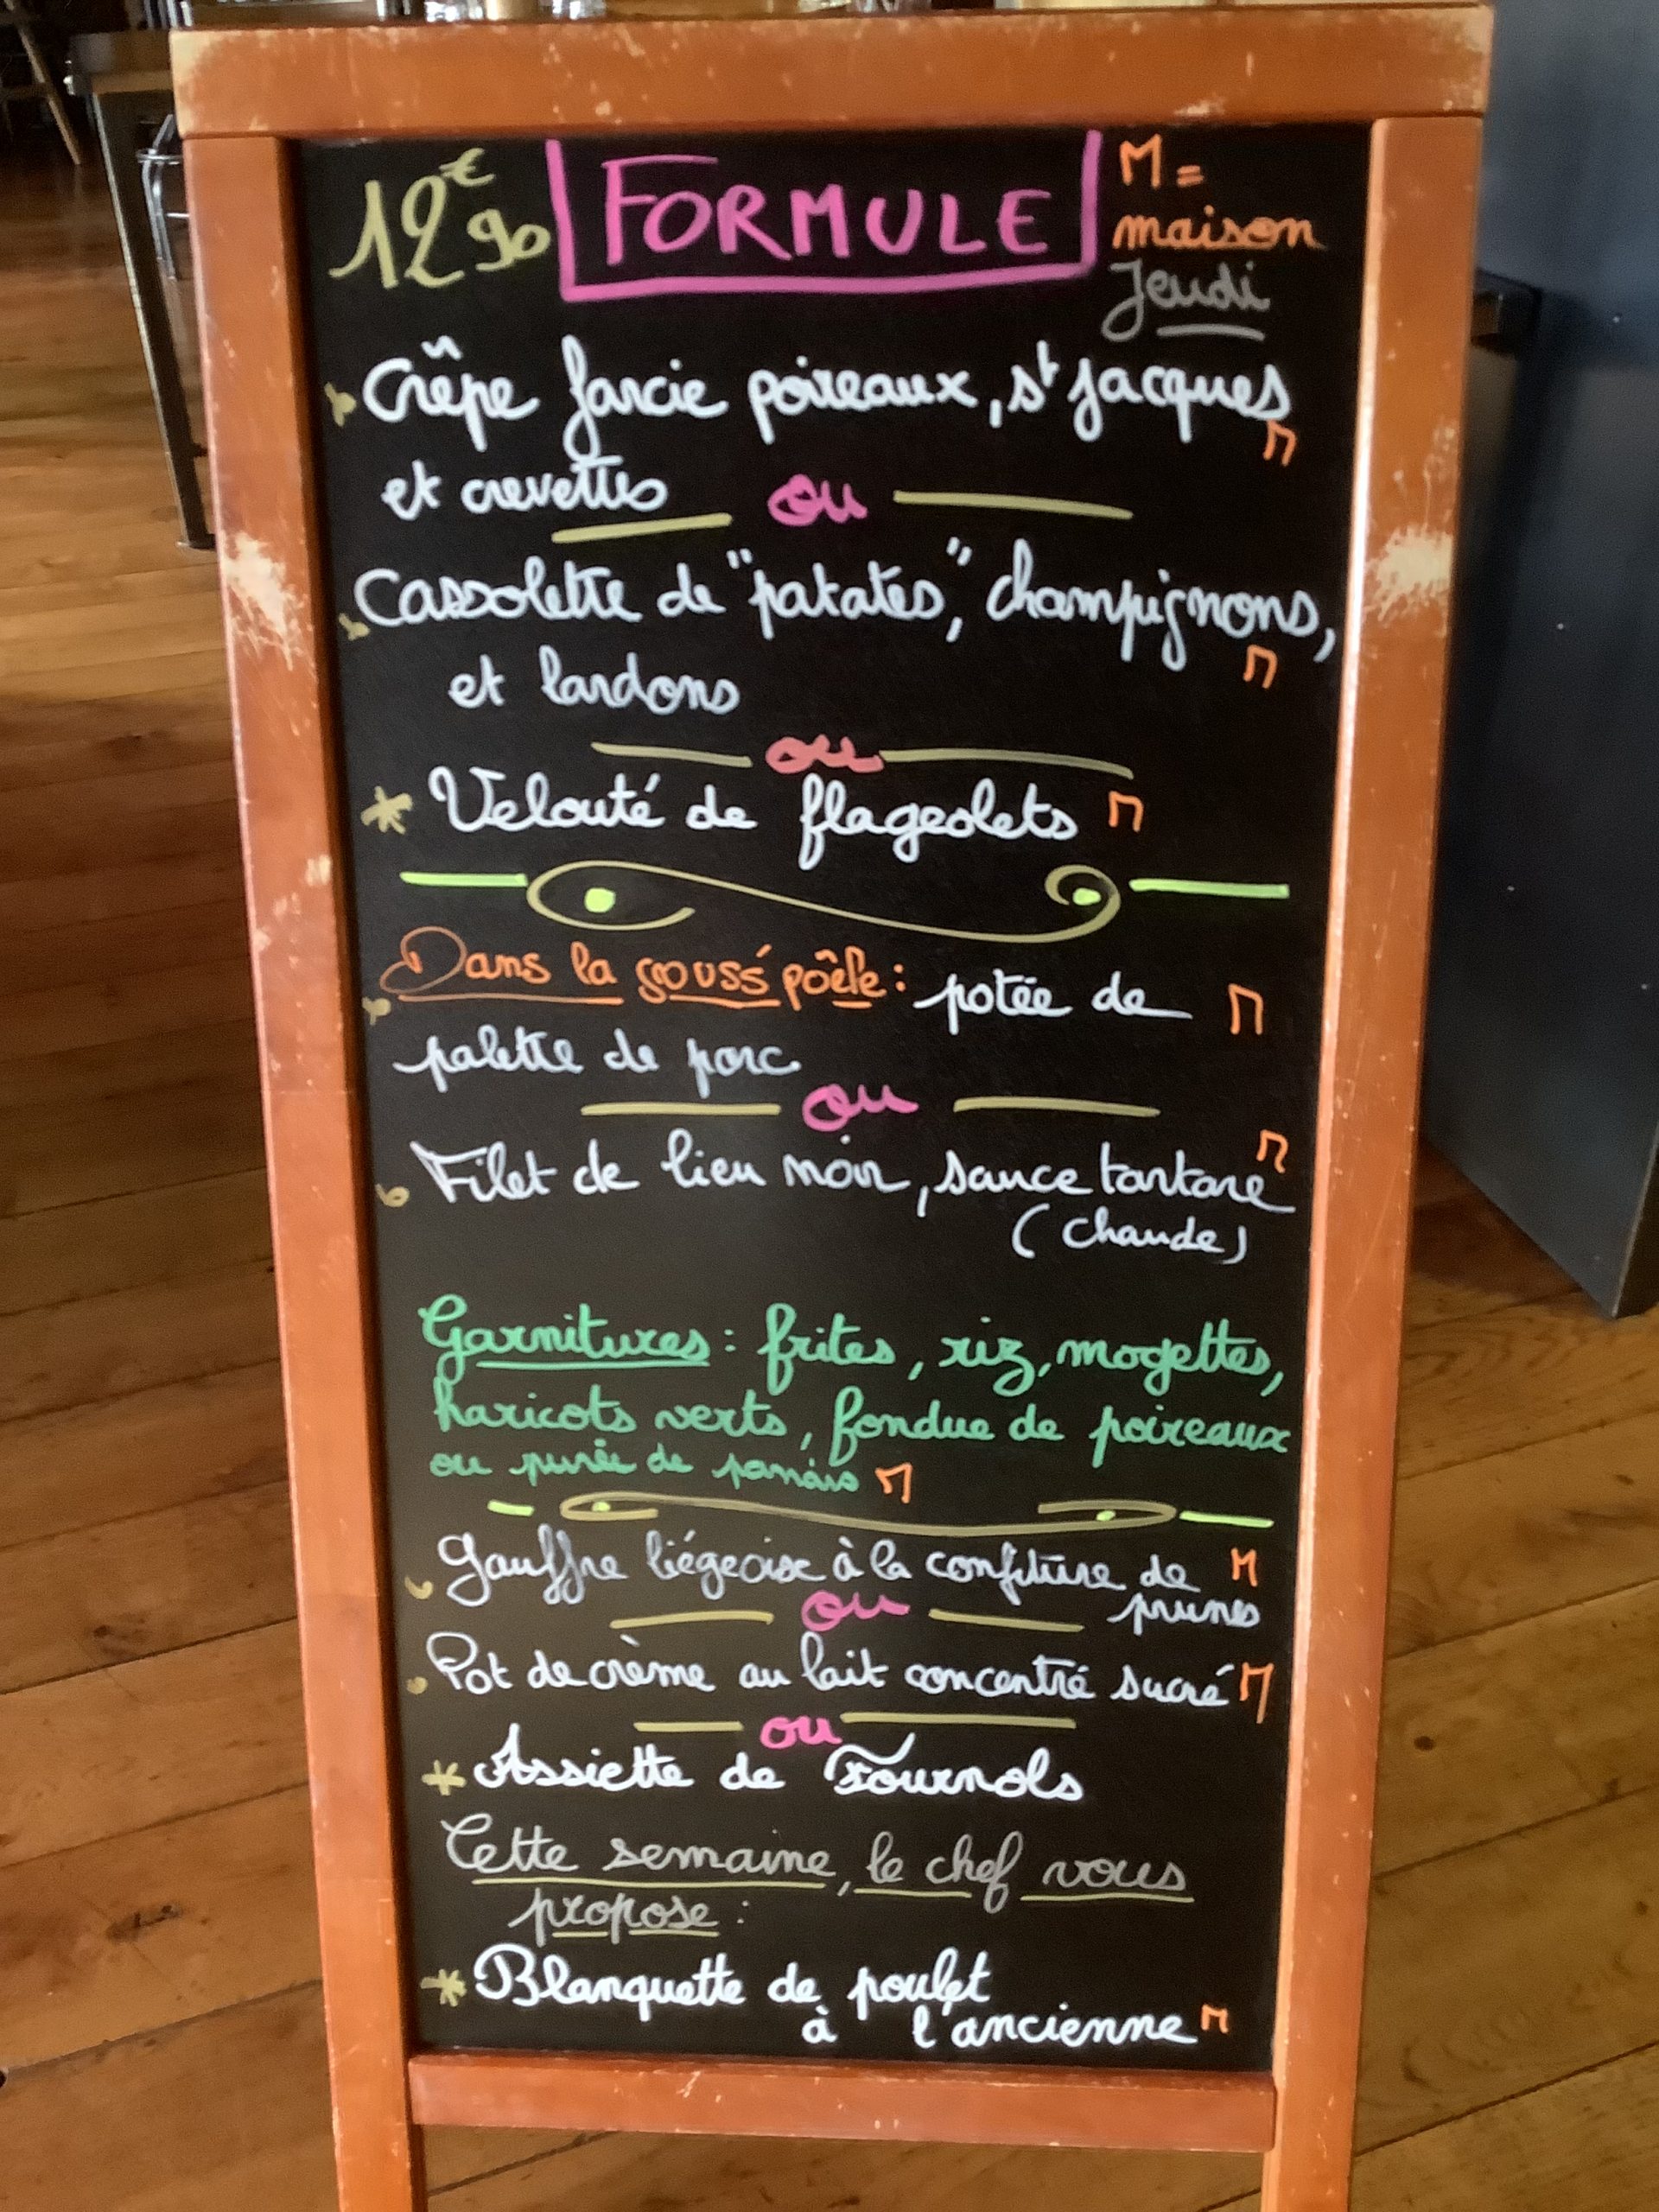 12€90 FORMULE M =
maison
Jeudi
Crêpe farcie poireaux, st Jacques
M
et crevettes
ou
Cassolette de "patates," champignons,
et lardons M
ou
* Velouté de flageolets M
Dans la gouss'poêle : potée de M
palette de porc
ou
Filet de lieu noir, sauce tartare M
(Chaude)
Garnitures : frites, riz, mogettes,
haricots verts, fondue de poireaux
ou purée de panais M
Gauffre liégeoise à la confiture de M
prunes
ou
Pot de crème au lait concentré sucré M
ou
* Assiette de Fournols
Cette semaine, le chef vous
propose :
* Blanquette de poulet
à l'ancienne M